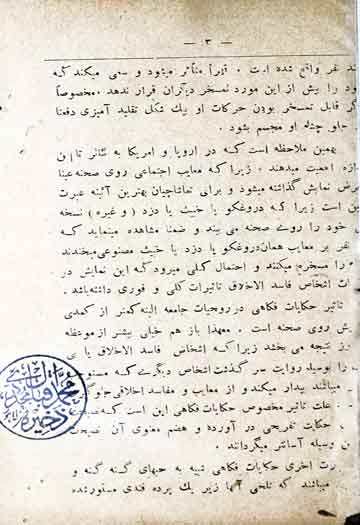 — ۳ —
ند نفر واقع شده است . قهراً متأثر میشود و سعی میکند که
ود را بیش از این مورد تمسخر دیگران قرار ندهد . مخصوصاً
گر قابل تمسخر بودن حرکات او بیك شکل تقلید آمیزی دفعتا
جلو چشم او مجسم بشود .
بهمین ملاحظه است که در اروپا و امریکا به تئاتر تا این
ازه اهمیت میدهند . زیرا که معایب اجتماعی روی صحنه عینا
رض نمایش گذاشته میشود و برای تماشاچیان بهترین آئینه عبرت
ین است زیرا که دروغگو یا خبیث یا دزد ( و غیره ) نسخه
خود را روی صحنه می بیند و ضمنا مشاهده مینماید که
نفر بر معایب همان دروغگو یا دزد یا خبیث مصنوعی میخندند
را مسخره میکنند و احتمال کلی میرود که این نمایش در
ات اشخاص فاسد الاخلاق تاثیرات کلی و فوری داشته باشد .
تاثیر حکایات فکاهی در روحیات جامعه البته کمتر از کمدی
یش روی صحنه است . معهذا باز هم خیلی بیشتر از موعظه
نیز نتیجه می بخشد زیرا که اشخاص فاسد الاخلاق یا بی
را بوسیله روایت سر گذشت اشخاص دیگری که
میباشند بیدار میکند و از معایب و مفاسد اخلاقی جلو
علت تاثیر مخصوص حکایات فکاهی این است که
حکایت تفریحی در آورده و هضم معنوی آن نصیحت
ن وسیله آسانتر میگردانند .
رت اخری حکایات فکاهی شبیه به حبهای گنه گنه و
میباشند که تلخی آنها زیر یك پرده قندی مستور شده